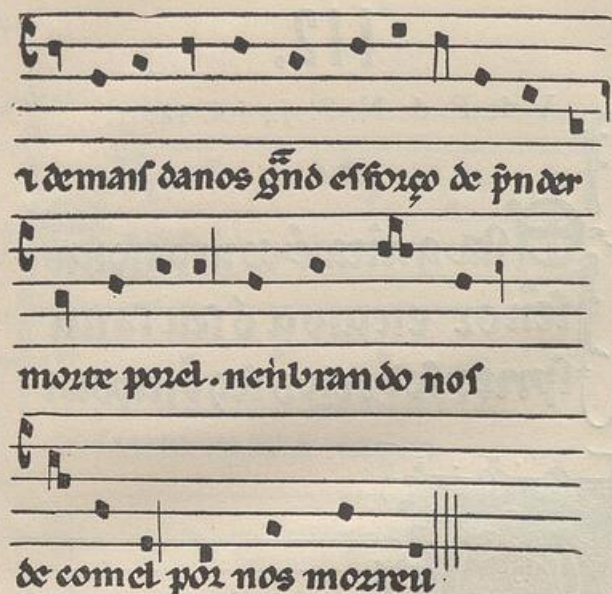 ⁊ demais danos gnd esforço de pnder
morte porel. nenbrando nos
de comel por nos morreu